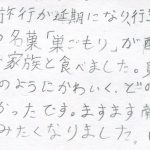 旅行が延期になり行
の名菓「巣ごもり」が
家族と食べました。
のようにかわいく、ど
かったです。ますます
みたくなりました。